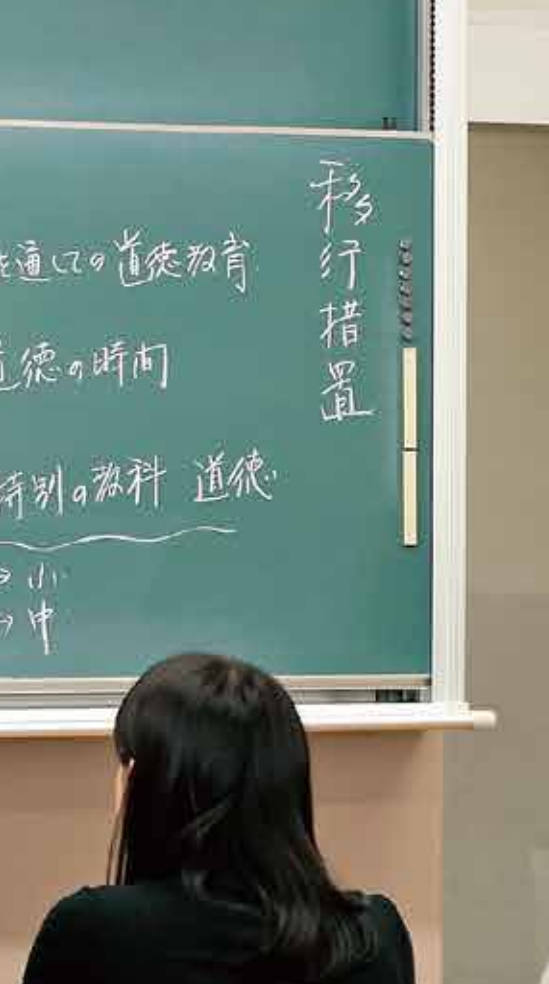 移行措置
を通しての道徳教育
道徳の時間
特別の教科 道徳
→ 小
→ 中